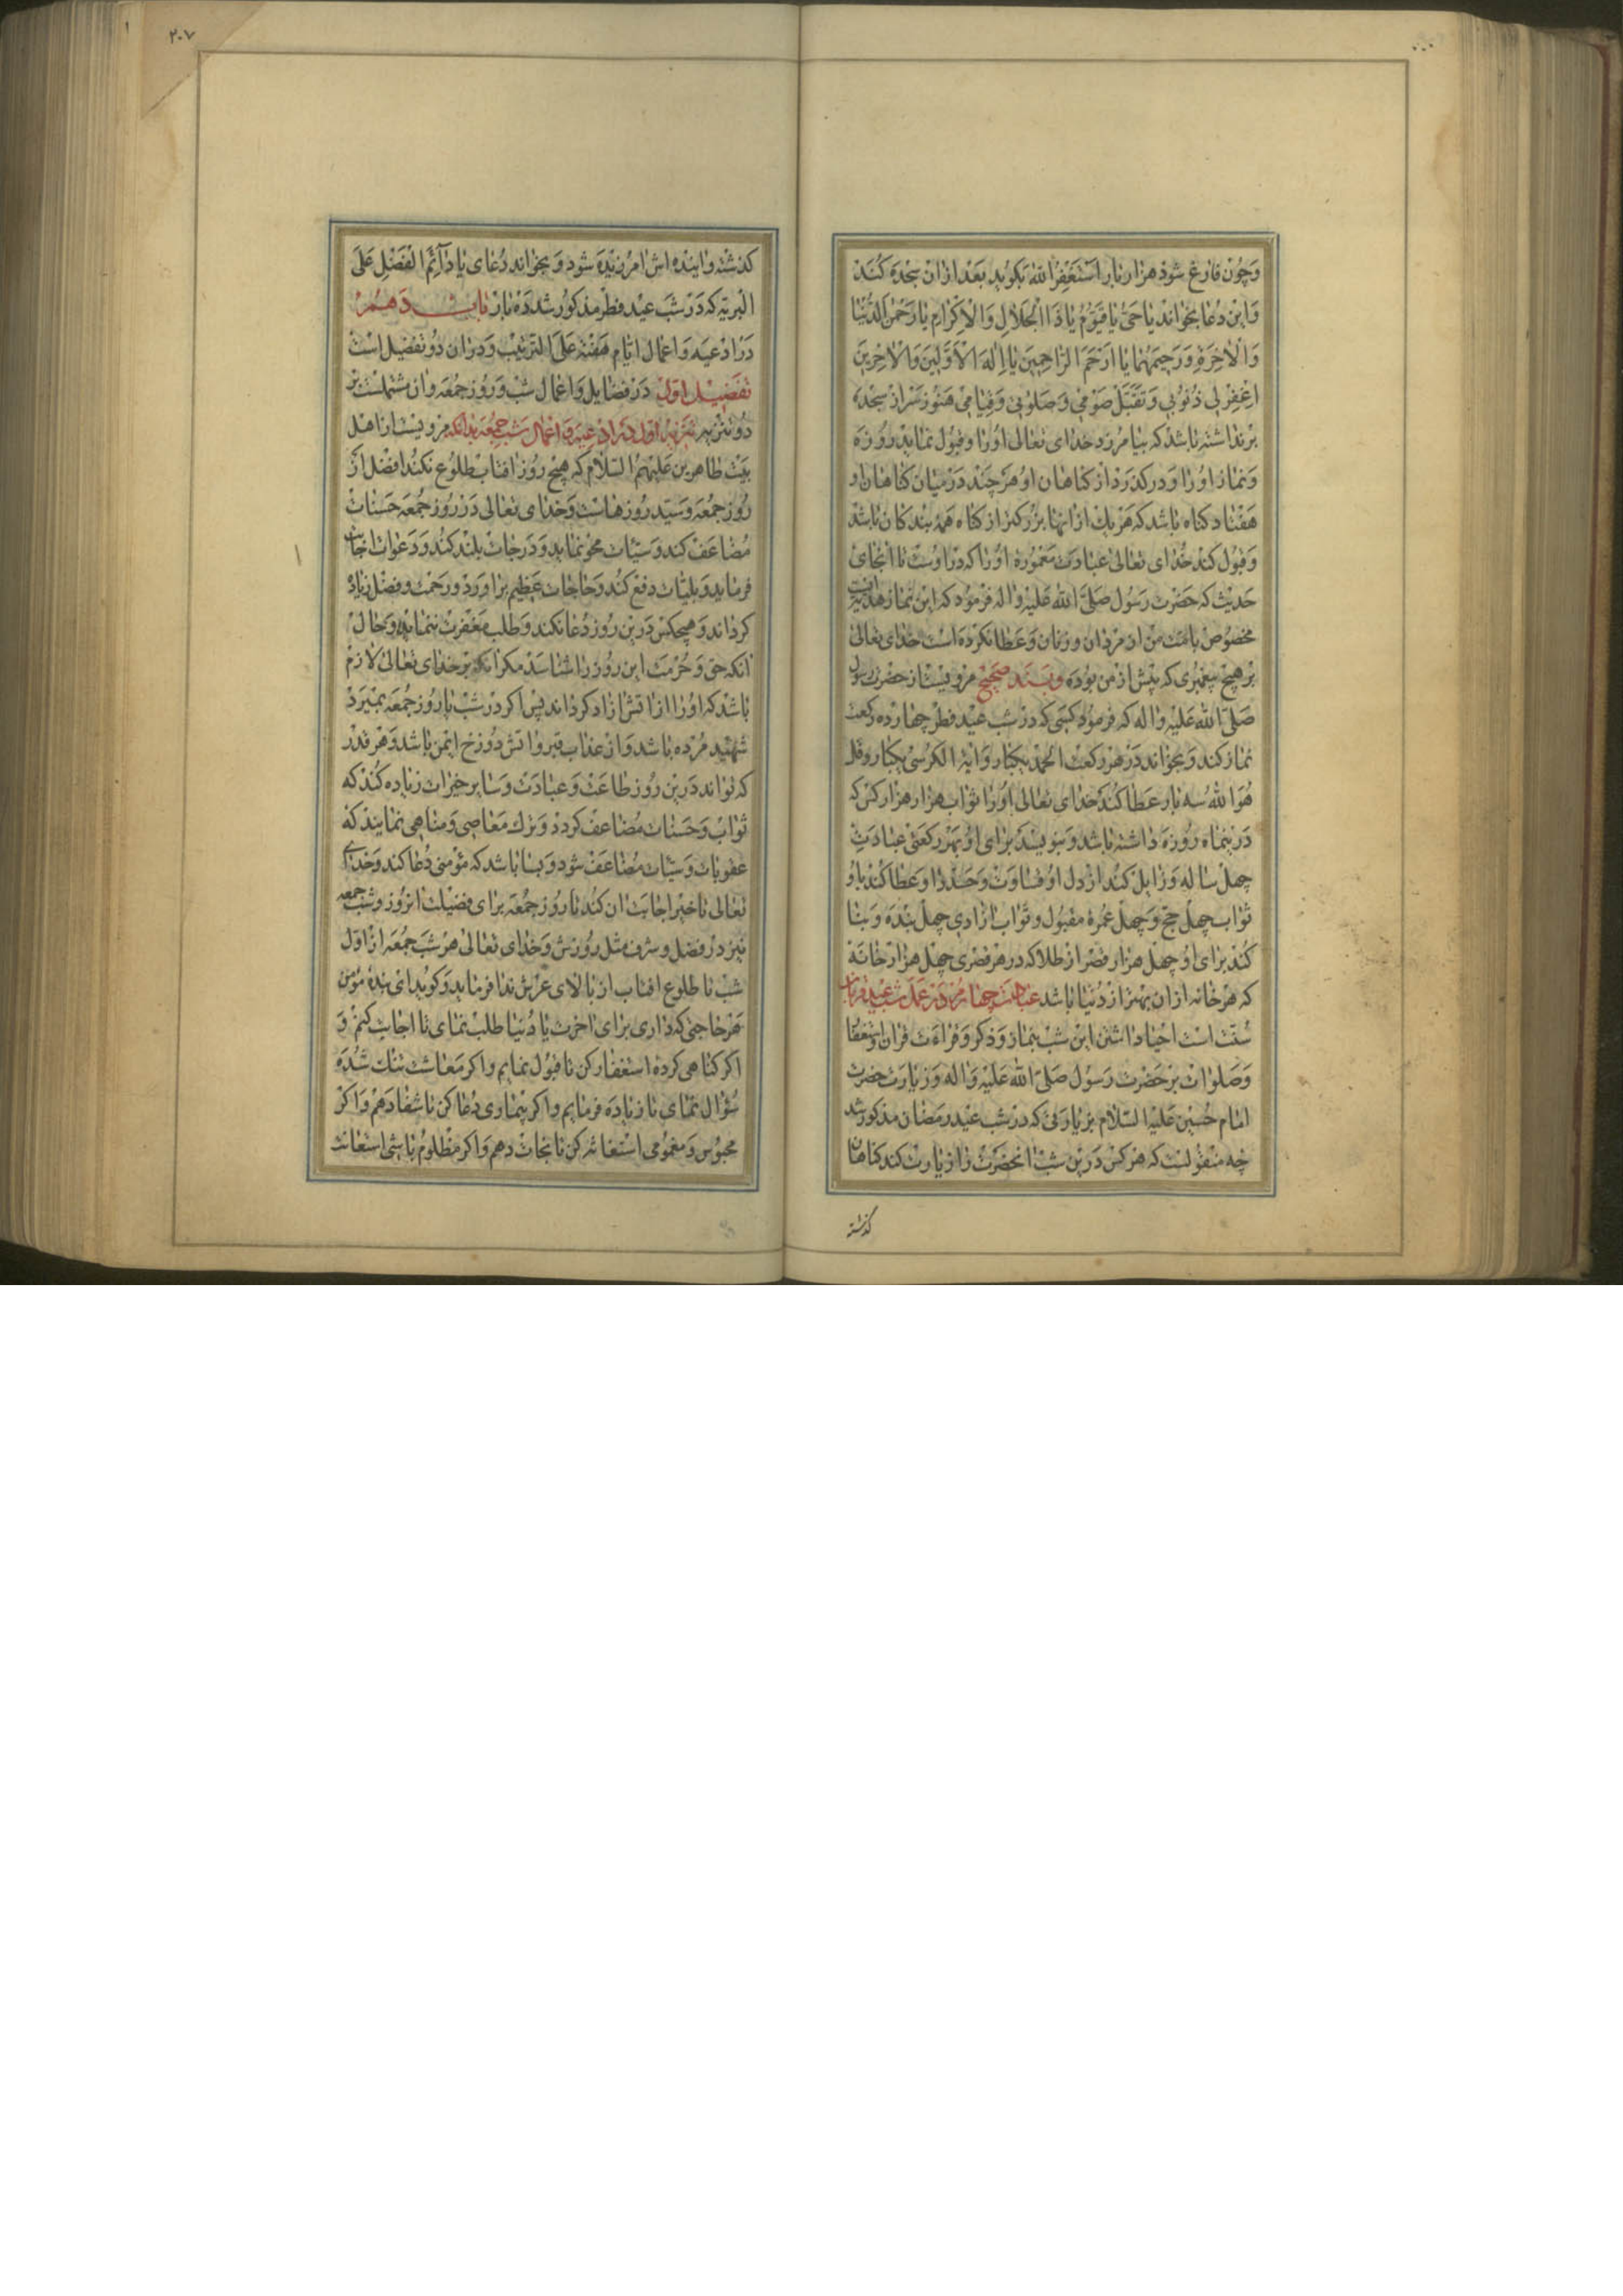 وَچُون فارغ شود هزار بار اَستَغفِرُ اللهَ بکوید بعَد ازان سجده کند
وَاین دُعا بخواند یا حَیُّ یا قَیّوُم یا ذَا الجَلالِ وَالاِکرامِ یا رَحمنَ الدُّنیا
وَالاخِرَةِ وَرَحیمَهُما یا اَرحَمَ الرّاحِمینَ یا اِلهَ الاَوَّلینَ وَالاخِرینَ
اِغفِر لی ذُنوُبی وَتَقَبَّل صَومی وَصَلوتی وَقِیامی هنوز سَر از سجده
برنداشته باشد که بیامرزد خدای تعالی اورا و قبول نماید روزه
وَنماز اورا و درکذرد از کناهان او هر چند در میان کناهان او
هَفتاد کناه باشد که هر یک ازانها بزرکتر از کناه همه بندکان باشد
وَقبول کند خدای تعالی عبادت معموره اورا که دراوست تا انجای
حدیث که حَضرت رَسول صَلَّی الله عَلیه واله فرمود که این نماز هدیه ایست
مخصوص بامّت من از مردان و زنان وعطا نکرده است خدای تعالی
برهیچ پیغمبری که پیش از من بوده وبسند صحیح مرویست از حضرت رسول
صَلّی الله عَلیه واله که فرمود کسی که در شب عید فطر چهارده رکعت
نماز کند و بخواند در هر رکعت الحمد یکبار وایة الکرسی یکبار و قل
هُوَ الله سه بار عطا کند خدای تعالی اورا ثواب هزار هزار کس که
دَر نیماه روزه داشته باشد وَبنویسد برای او بهر رکعتی عبادت
چهل ساله وَزایل کند از دل او قساوت وَحسد را و عطا کند باو
ثواب چهل حج وَ چهل عُمره مقبول وثواب ازادی چهل بنده وَبنا
کند برای او چهل هزار قصر از طلا که در هر قصری چهل هزار خانه
که هر خانه ازان بهتر از دُنیا باشد عبادت چهارم در عمل شب عید قربان
سُنّت است احیا داشتن این شب بنماز وَذکر وَقراءت قران واستغفار
وَصَلوات برحَضرت رَسول صَلَّی الله عَلیه وَاله وَزیارت حضرت
امام حُسین عَلیه السّلام بزیارتی که در شب عید رمضان مذکور شد
چه منقولست که هر کس در این شب انحضرت را زیارت کند کناهان
کذشته
۲۰۷
کذشته واینده اش امرزیده شود وبخواند دعای یا دائِمَ الفَضلِ عَلَی
البَریّه که دَر شب عید فطر مذکور شد ده بار باب دهم
دَر ادعیه وَاعمال ایّام هفته علی الترتیب ودران دو تفصیل است
تفصیل اول دَر فضایل وَاعمال شب وَروز جمُعه وان مشتملست بر
دو تنزیه تنزیه اول در ادعیه و اعمال شب جمعه بدانکه مرویست از اهل
بیت طاهرین عَلیهمُ السّلام که هیچ روز افتاب طلوع نکند افضل از
روز جمعه وَسیّد روزهاست وَخدای تعالی دَر روز جمُعه حَسَنات
مُضاعف کند وَسیّئات محو نماید وَدَرجات بلند کند وَدَعوات اجابت
فرماید وَبلیّات دفع کند وَحاجات عظیم براورد ورحمت وفضل زیاد
کرداند وَهیچکس درین روز دُعا نکند وَطلب مغفرت ننماید وحال
انکه حق وَحُرمت این روز را شناسد مکر انکه بر خدای تعالی لازم
باشد که اورا از اتش ازاد کرداند پس اکر در شب یا روز جمُعه بمیرد
شهید مُرده باشد وَاز عذاب قبر واتش دوزخ ایمن باشد وَهر قدر
که تواند درین روز طاعت وَعبادت وَسایر خیرات زیاده کند که
ثواب وَحسنات مُضاعف کردد وَترک معاصی وَمناهی نمایند که
عقوبات وَسیّئات مُضاعَف شود وبسا باشد که مؤمنی دُعا کند وَخدای
تعالی تاخیر اجابت ان کند تا روز جمُعه برای فضیلت انروز وشب جمعه
نیز در فضل وشرف مثل روزش وَخدای تعالی هر شب جمُعه از اوّل
شب تا طلوع افتاب از بالای عرش ندا فرماید وَکوید ای بنده مؤمن
هر حاجتی که داری برای اخرت یا دُنیا طلب نمای تا اجابت کنم وَ
اکر کناهی کرده استغفار کن تا قبول نمایم واکر معاشت تنک شده
سُؤال نمای تا زیاده فرمایم واکر بیماری دُعا کن تا شفا دهم وَاکر
محبوس وَمغمومی استغاثه کن تا نجات دهم وَاکر مظلوم باشی استعانت